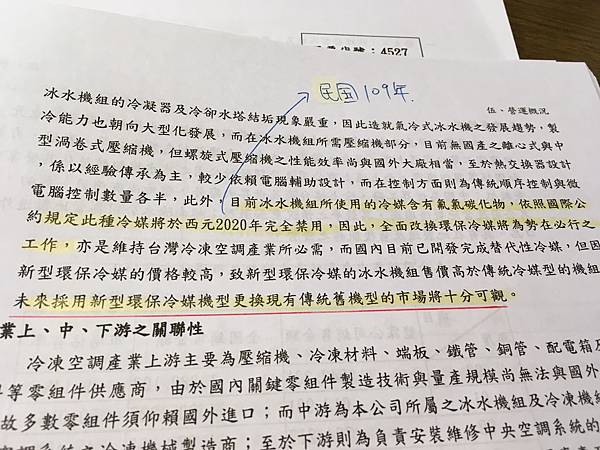 ：4527
民国109年
伍、營運概況
冰水機組的冷凝器及冷卻水塔結垢現象嚴重，因此造就氣冷式冰水機之發展趨勢，製
冷能力也朝向大型化發展，而在冰水機組所需壓縮機部分，目前無國產之離心式與中
型渦卷式壓縮機，但螺旋式壓縮機之性能效率尚與國外大廠相當，至於熱交換器設計
，係以經驗傳承為主，較少依賴電腦輔助設計，而在控制方面則為傳統順序控制與微
電腦控制數量各半，此外，目前冰水機組所使用的冷媒含有氟氯碳化物，依照國際公
約規定此種冷媒將於西元2020年完全禁用，因此，全面改換環保冷媒將為勢在必行之
工作，亦是維持台灣冷凍空調產業所必需，而國內目前已開發完成替代性冷媒，但因
新型環保冷媒的價格較高，致新型環保冷媒的冰水機組售價高於傳統冷媒型的機組
未來採用新型環保冷媒機型更換現有傳統舊機型的市場將十分可觀。
業上、中、下游之關聯性
冷凍空調產業上游主要為壓縮機、冷凍材料、端板、鐵管、銅管、配電箱及
等零組件供應商，由於國內關鍵零組件製造技術與量產規模尚無法與國外
故多數零組件須仰賴國外進口；而中游為本公司所屬之冰水機組及冷凍機組
空調系統之冷凍機械製造商；至於下游則為負責安裝維修中央空調系統的